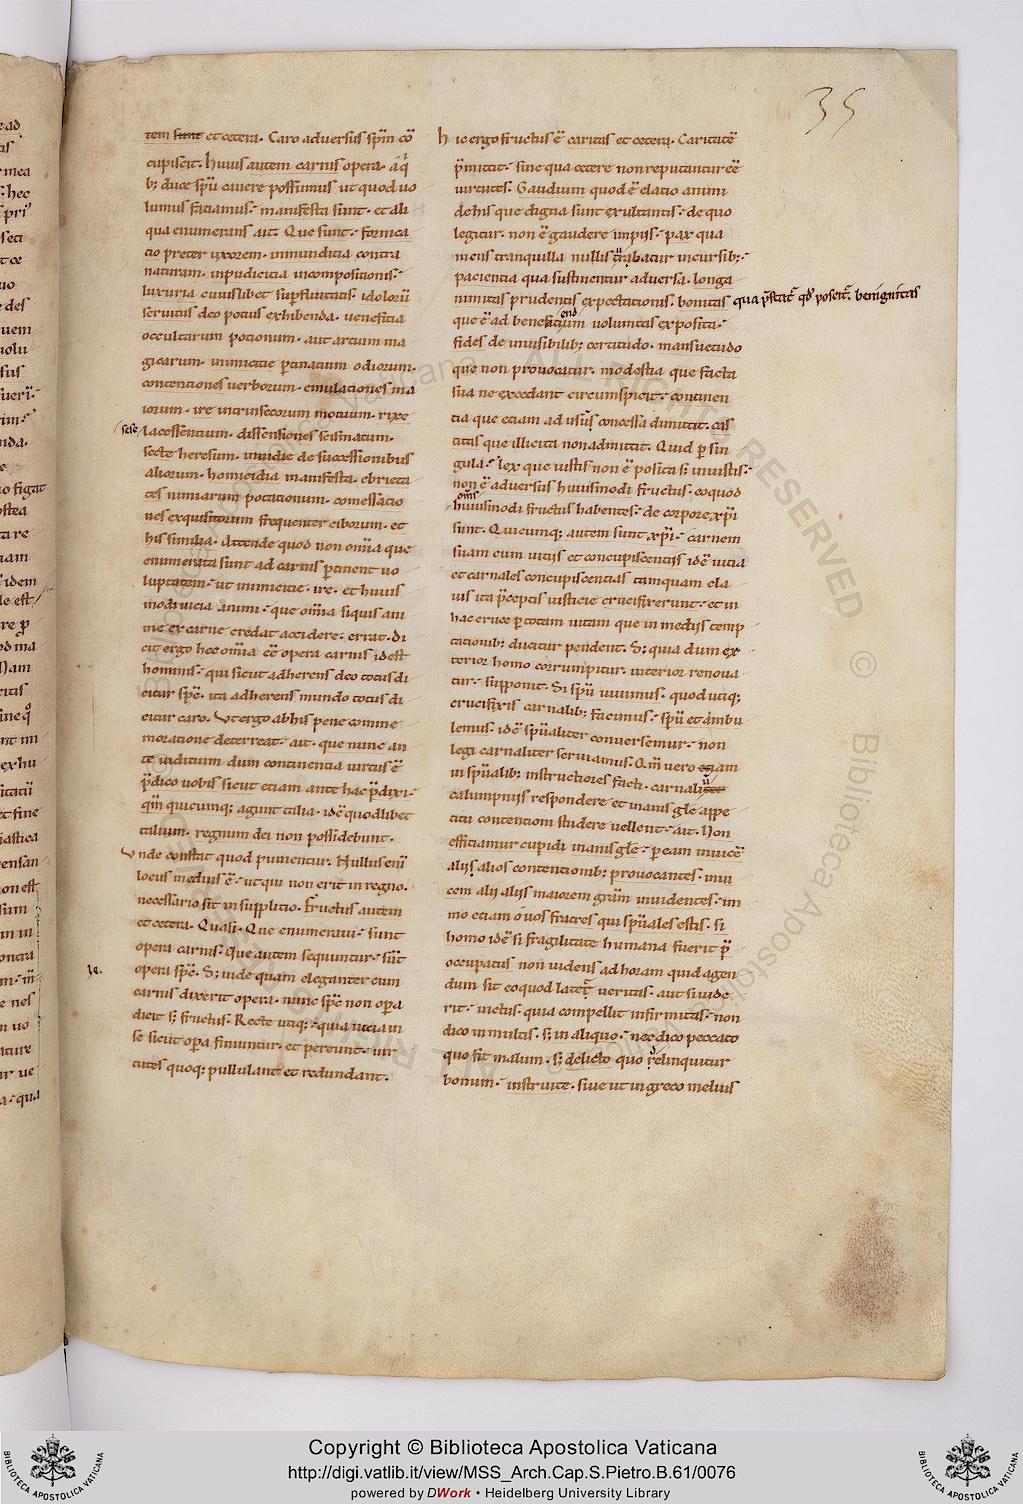 35
tem sunt et cetera. Caro adversus sp̄m cō
cupiscit. huius autem carnis opera. a q͛
b; duce spū cavere possumus ut quod uo
lumus faciamus. manifesta sunt. et ali
qua enumerans ait. Que sunt. fornica
tio preter uxorem. inmunditia contra
naturam. inpudicitia incompositionis.
luxuria cuiuslibet supfluitatis. idolorū
servitus deo potius exhibenda. venefitia
occultarum potionum. aut artium ma
gicarum. inimicitie ptinatium odiorum.
contentiones verborum. emulationes ma
iorum. ire intrinsecorum motuum. rixe
sese lacessentium. dissensiones scismatum.
secte heresium. invidie de successionibus
aliorum. homicidia manifesta. ebrieta
tes nimiarum potationum. comessatio
nes exquisitorum frequenter ciborum. et
his similia. Attende quod non om̄ia que
enumerata sunt ad carnis ptinent uo
luptatem. ut inimicitie. ire. et huius
modi vicia animi. que om̄ia siquis ani
me ex carne credat accidere. errat. di
cit ergo hec om̄ia eē opera carnis id est
hominis. qui sicut adherens deo totus di
citur spc̄. ita adherens mundo totus di
citur caro. Ut ergo ab his pene comme
moratione deterreat. ait. que nunc an
te iuditium dum continentia virtus ē
p̄dico vobis sicut etiam ante hac p̄dixi.
qm̄ quicumq; agunt talia. idē quodlibet
talium. regnum dei non possidebunt.
Unde constat quod punientur. Nullus enī
locus medius ē. ut qui non erit in regno.
necessario sit in supplicio. Fructus autem
et cetera. Quasi. Que enumeravi. sunt
opera carnis. Que autem sequuntur. sūt
Ie. opera spc̄. S; vide quam eleganter cum
carnis dixerit opera. nunc spc̄ non opa
dicit s; fructus. Recte utiq;. quia vicia in
se sicut opa finiuntur. et pereunt. vir
tutes quoq; pullulant et redundant.
hic ergo fructus ē caritas et cetera. Caritatē
p̄mittit. sine qua cetere non reputantur eē
virtutes. Gaudium quod ē elatio animi
de his que digna sunt exultantis. de quo
legitur. non ē gaudere impiis. pax qua
mens tranquilla nullis turbatur incursib;.
pacientia qua sustinentur adversa. longa
nimitas prudentis expectationis. bonitas qua p̄stat͛ qd̄ poscit͛. benignitas
que ē ad benefitium voluntas exposita.
fides de invisibilib; certitudo. mansuetudo
que non provocatur. modestia que facta
sua ne excedant circumspicit. continen
tia que etiam ad usus concessa diminuit. cas
titas que illicita non admittit. Quid p sin
gula. lex que iustis non ē posita s; iniustis.
non ē adversus huiusmodi fructus. eo quod
om̄s huiusmodi fructus habentes. de corpore xpi
sunt. Quicumq; autem sunt xpi. carnem
suam cum vitiis et concupiscentiis idē vitia
et carnales concupiscentias tamquam cla
vis ita p̄ceptis iusticie crucifixerunt. et in
hac cruce p totam vitam que in mediis temp
tationib; ducatur pendent. S; quia dum ex
terior homo corrumpitur. interior renova
tur. supponit. Si spū vivimus. quod utiq;
crucifixis carnalib; facimus. spū et ambu
lemus. idē spūaliter conversemur. non
legi carnaliter serviamus. Qm̄ vero etiam
in spūalib; instructiores facti. carnaliter
calumpniis respondere et inanis gle appe
titu contentioni studere vellent. ait. Non
efficiamur cupidi inanis gle. p eam invicē
alii alios contentionib; provocantes. invi
cem alii aliis maiorem grām invidentes. im
mo etiam o vos fratres qui spūales estis. si
homo idē si fragilitate humana fuerit p̄
occupatus non videns ad horam quid agen
dum sit eo quod latet͛ veritas. aut si vide
rit. victus. quia compellit infirmitas. non
dico in multis. s; in aliquo. nec dico peccato
quo fit malum. s; delicto quo relinquitur
bonum. instruite. sive ut in greco melius
Copyright © Biblioteca Apostolica Vaticana
http://digi.vatlib.it/view/MSS_Arch.Cap.S.Pietro.B.61/0076
powered by DWork • Heidelberg University Library